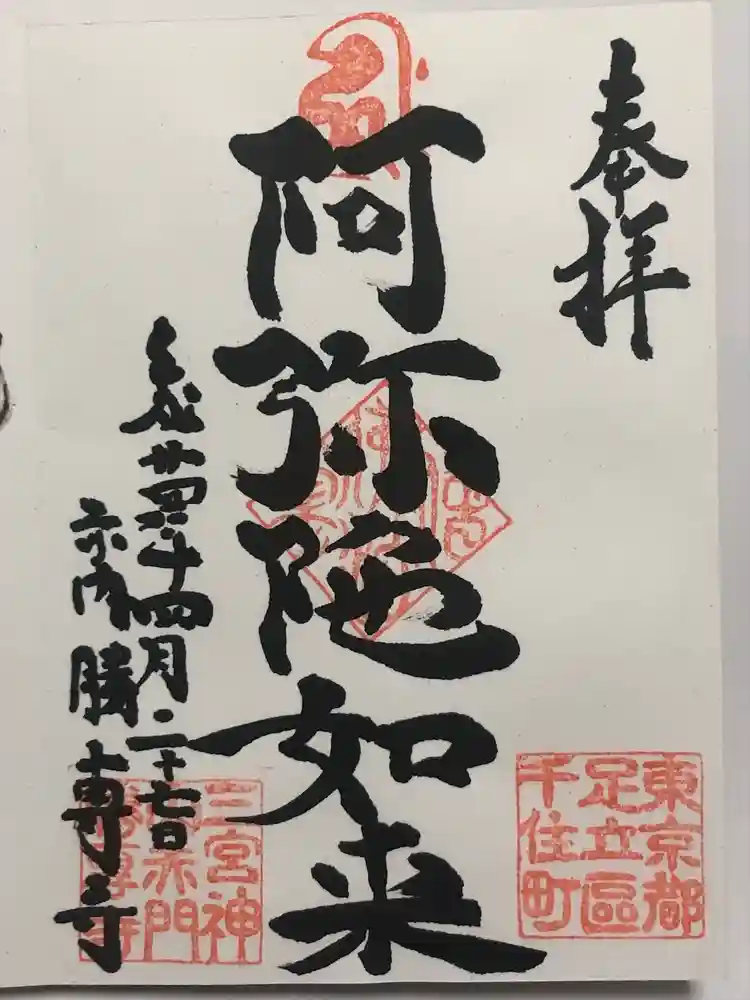 奉拝
東京都
足立區
千住町
阿弥陀如来
平成廿四年四月二十七日
京内勝専寺
三宮神
山赤門
勝専寺